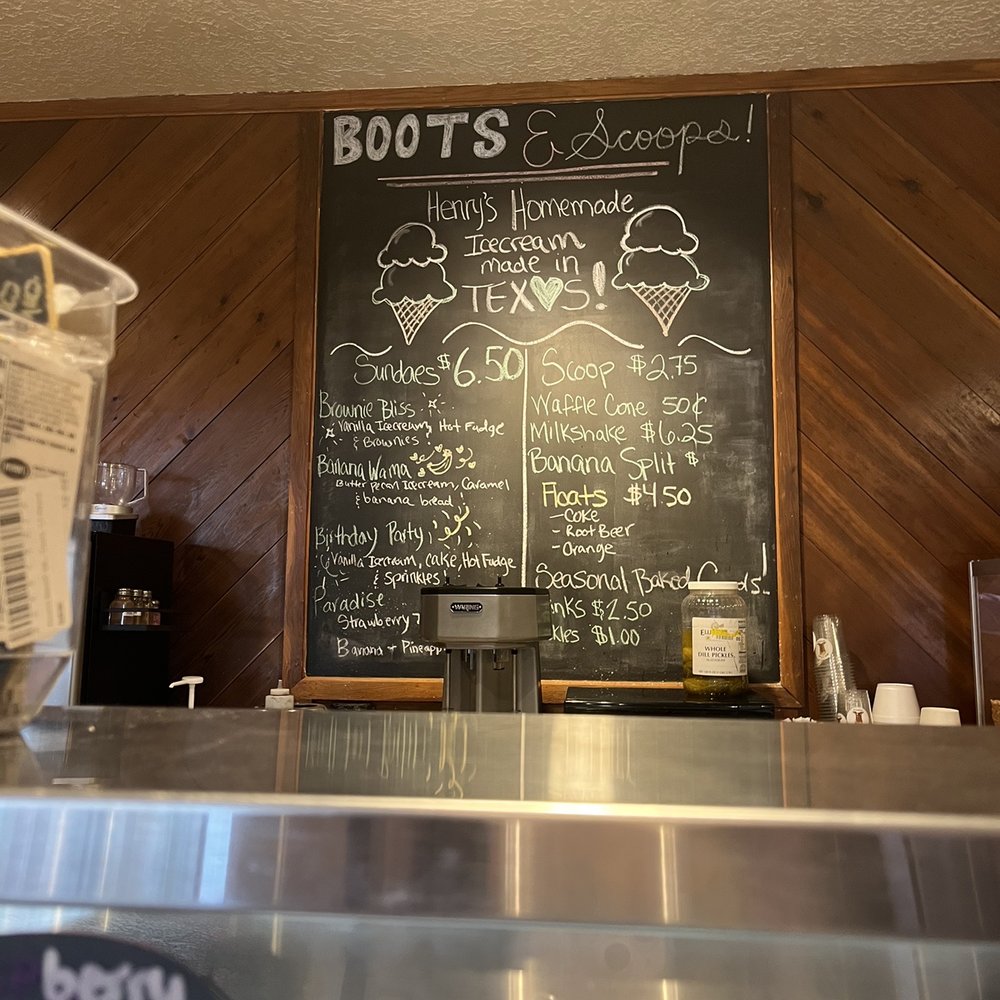 BOOTS & Scoops!
Henry's Homemade
Icecream
made in
TEXAS!
Sundaes $6.50
Brownie Bliss
Vanilla Icecream, Hot Fudge
& Brownies!
Banana Wama
Butter Pecan Icecream, Caramel
& banana bread
Birthday Party
Vanilla Icecream, cake, Hot Fudge
& Sprinkles!
Paradise
Strawberry
Banana + Pineapp
Scoop $2.75
Waffle Cone 50¢
Milkshake $6.25
Banana Split $
Floats $4.50
- Coke
- Root Beer
- Orange
Seasonal Baked
nks $2.50
kles $1.00
WARING
WHOLE
DILL PICKLES
berry